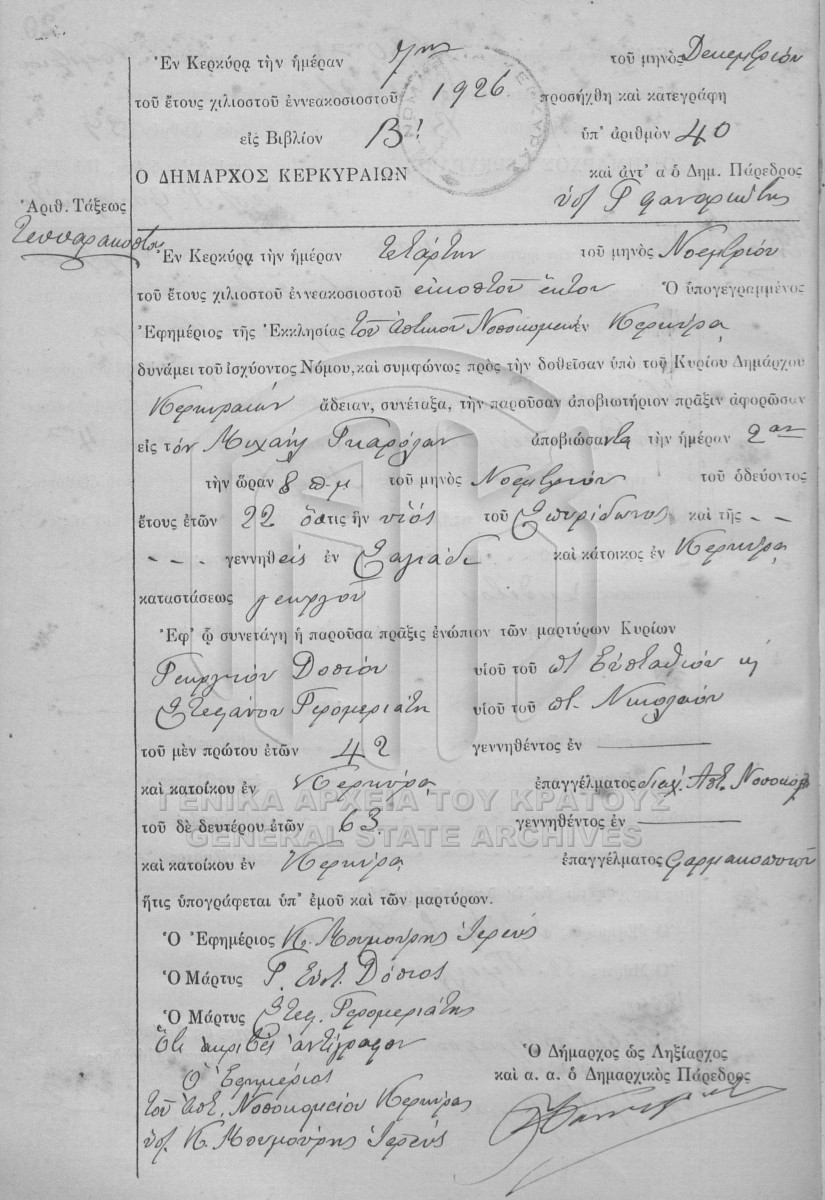 Ἐν Κερκύρᾳ τὴν ἡμέραν 7ην τοῦ μηνὸς Δεκεμβρίου
τοῦ ἔτους χιλιοστοῦ ἐννεακοσιοστοῦ 1926 προσήχθη καὶ κατεγράφη
εἰς Βιβλίον Β! ὑπ' ἀριθμὸν 40
Ο ΔΗΜΑΡΧΟΣ ΚΕΡΚΥΡΑΙΩΝ καὶ ἀντ' α ὁ Δημ. Πάρεδρος
Ἀριθ. Τάξεως
Τεσσαρακοστὸν
Ἐν Κερκύρᾳ τὴν ἡμέραν τετάρτην τοῦ μηνὸς Νοεμβρίου
τοῦ ἔτους χιλιοστοῦ ἐννεακοσιοστοῦ εἰκοστοῦ ἕκτου Ὁ ὑπογεγραμμένος
Ἐφημέριος τῆς Ἐκκλησίας τοῦ Ἀστικοῦ Νοσοκομείου ἐν Κερκύρᾳ
δυνάμει τοῦ ἰσχύοντος Νόμου, καὶ συμφώνως πρὸς τὴν δοθεῖσαν ὑπὸ τοῦ Κυρίου Δημάρχου
Κερκυραίων ἄδειαν, συνέταξα, τὴν παροῦσαν ἀποβιωτήριον πρᾶξιν ἀφορῶσαν
εἰς τὸν Μιχαὴλ Γκαρόλαν ἀποβιώσαντα τὴν ἡμέραν 2αν
τὴν ὥραν 8 π.μ τοῦ μηνὸς Νοεμβρίου τοῦ ὁδεύοντος
ἔτους ἐτῶν 22 ὅστις ἦν υἱὸς τοῦ Σπυρίδωνος καὶ τῆς - -
- - - γεννηθεὶς ἐν Σαγιάδι καὶ κάτοικος ἐν Κερκύρᾳ
καταστάσεως γεωργοῦ
Ἐφ' ᾧ συνετάγη ἡ παροῦσα πρᾶξις ἐνώπιον τῶν μαρτύρων Κυρίων
Γεωργίου Δοσίου υἱοῦ τοῦ ποτ Εὐσταθίου κ
Στεφάνου Γερομεριάτη υἱοῦ τοῦ ποτ. Νικολάου
τοῦ μὲν πρώτου ἐτῶν 42 γεννηθέντος ἐν ———
καὶ κατοίκου ἐν Κερκύρᾳ ἐπαγγέλματος διαχ. Ἀστ. Νοσοκομ
ΓΕΝΙΚΑ ΑΡΧΕΙΑ ΤΟΥ ΚΡΑΤΟΥΣ
τοῦ δὲ δευτέρου ἐτῶν 63 γεννηθέντος ἐν ———
GENERAL STATE ARCHIVES
καὶ κατοίκου ἐν Κερκύρᾳ ἐπαγγέλματος φαρμακοποιοῦ
ἥτις ὑπογράφεται ὑπ' ἐμοῦ καὶ τῶν μαρτύρων.
Ὁ Ἐφημέριος Κ. Μουμούρης Ἱερεὺς
Ὁ Μάρτυς Γ. Εὐστ. Δόσιος
Ὁ Μάρτυς Στεφ. Γερομεριάτης
Ὅτι ἀκριβὲς ἀντίγραφον
Ὁ Ἐφημέριος
τοῦ Ἀστ. Νοσοκομείου Κερκύρας
ὑπ. Κ. Μουμούρης Ἱερεὺς
Ὁ Δήμαρχος ὡς Ληξίαρχος
καὶ α. α. ὁ Δημαρχικὸς Πάρεδρος